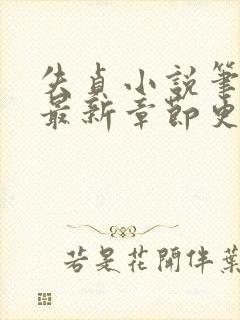 失貞小說筆
最新章節史
若是花開伴葉